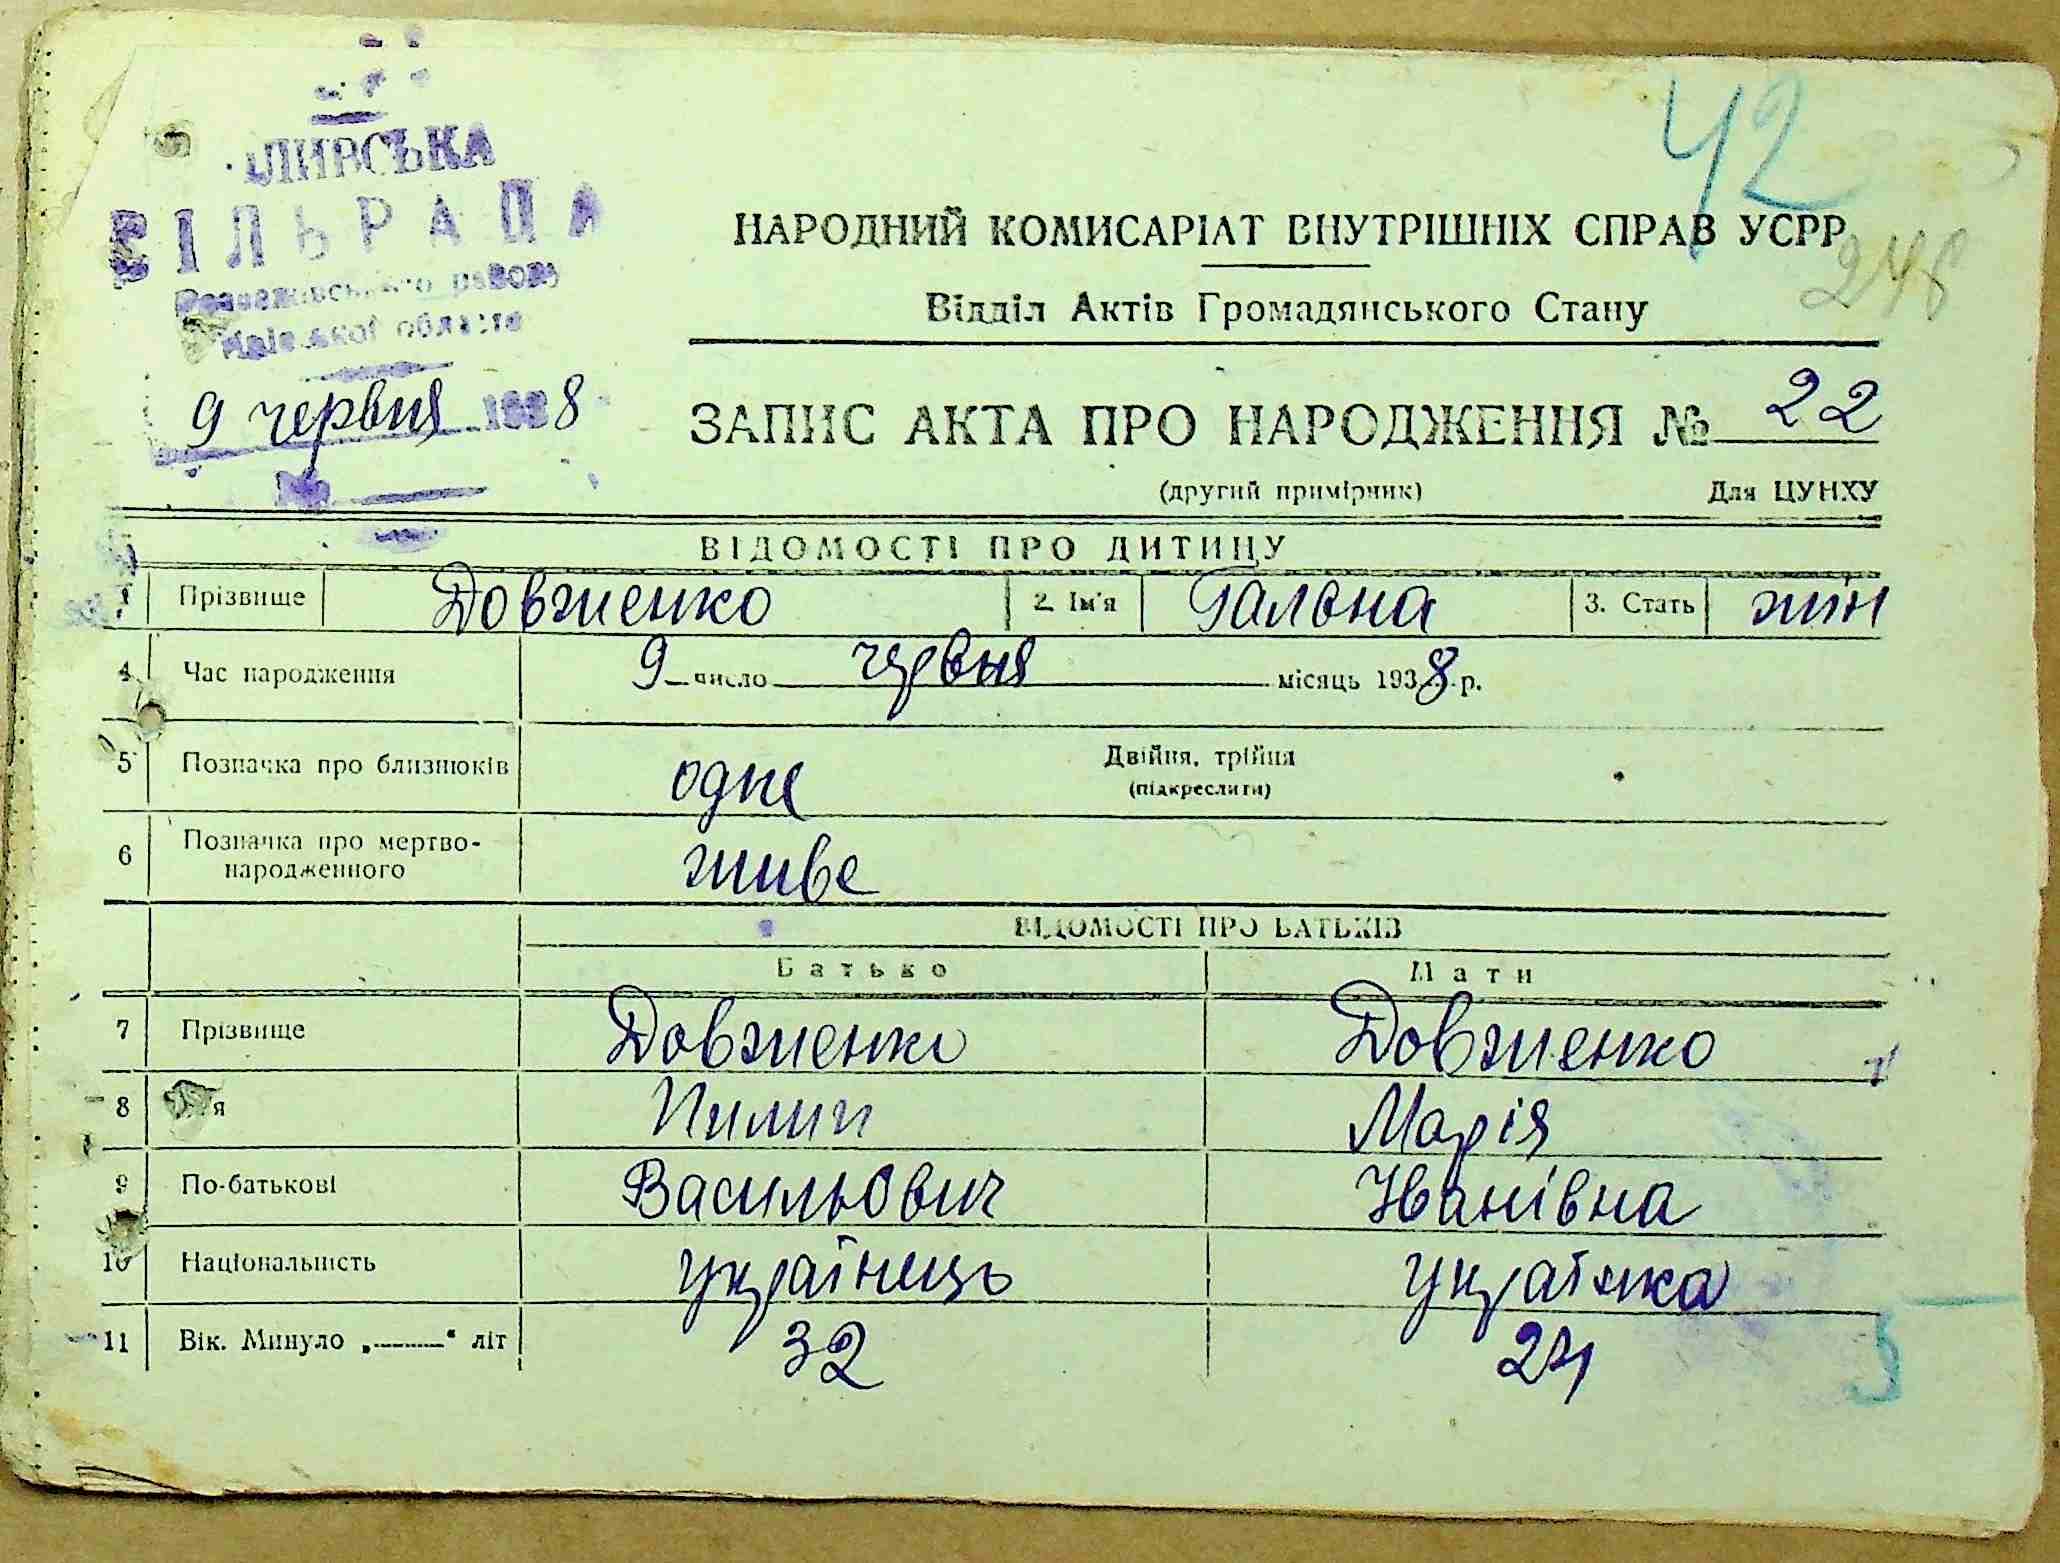 42
СІЛЬРАДА
9 червня 1938
№
НАРОДНИЙ КОМИСАРІАТ ВНУТРІШНІХ СПРАВ УСРР
248
Відділ Актів Громадянського Стану
ЗАПИС АКТА ПРО НАРОДЖЕННЯ № 22
(другий примірник) Для ЦУНХУ
ВІДОМОСТІ ПРО ДИТИНУ
1 Прізвище Довженко 2. Ім'я Гальвна 3. Стать жін
4 Час народження 9 число червня місяць 1938 р.
5 Позначка про близнюків одне Двійня, трійня
(підкреслити)
6 Позначка про мертво-
народженного живе
ВІДОМОСТІ ПРО БАТЬКІВ
Батько Мати
7 Прізвище Довженко Довженко
8 я Пилип Марія
9 По-батькові Васильович Іванівна
10 Національність українець українка
11 Вік. Минуло „ " літ 32 24